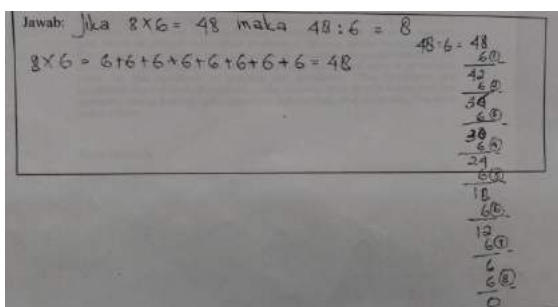 Jawab: Jika 8 × 6 = 48 maka 48 : 6 = 8
8 × 6 = 6+6+6+6+6+6+6+6 = 48
48 : 6 = 48
6 ①
42
6 ②
36
6 ③
30
6 ④
24
6 ⑤
18
6 ⑥
12
6 ⑦
6
6 ⑧
0